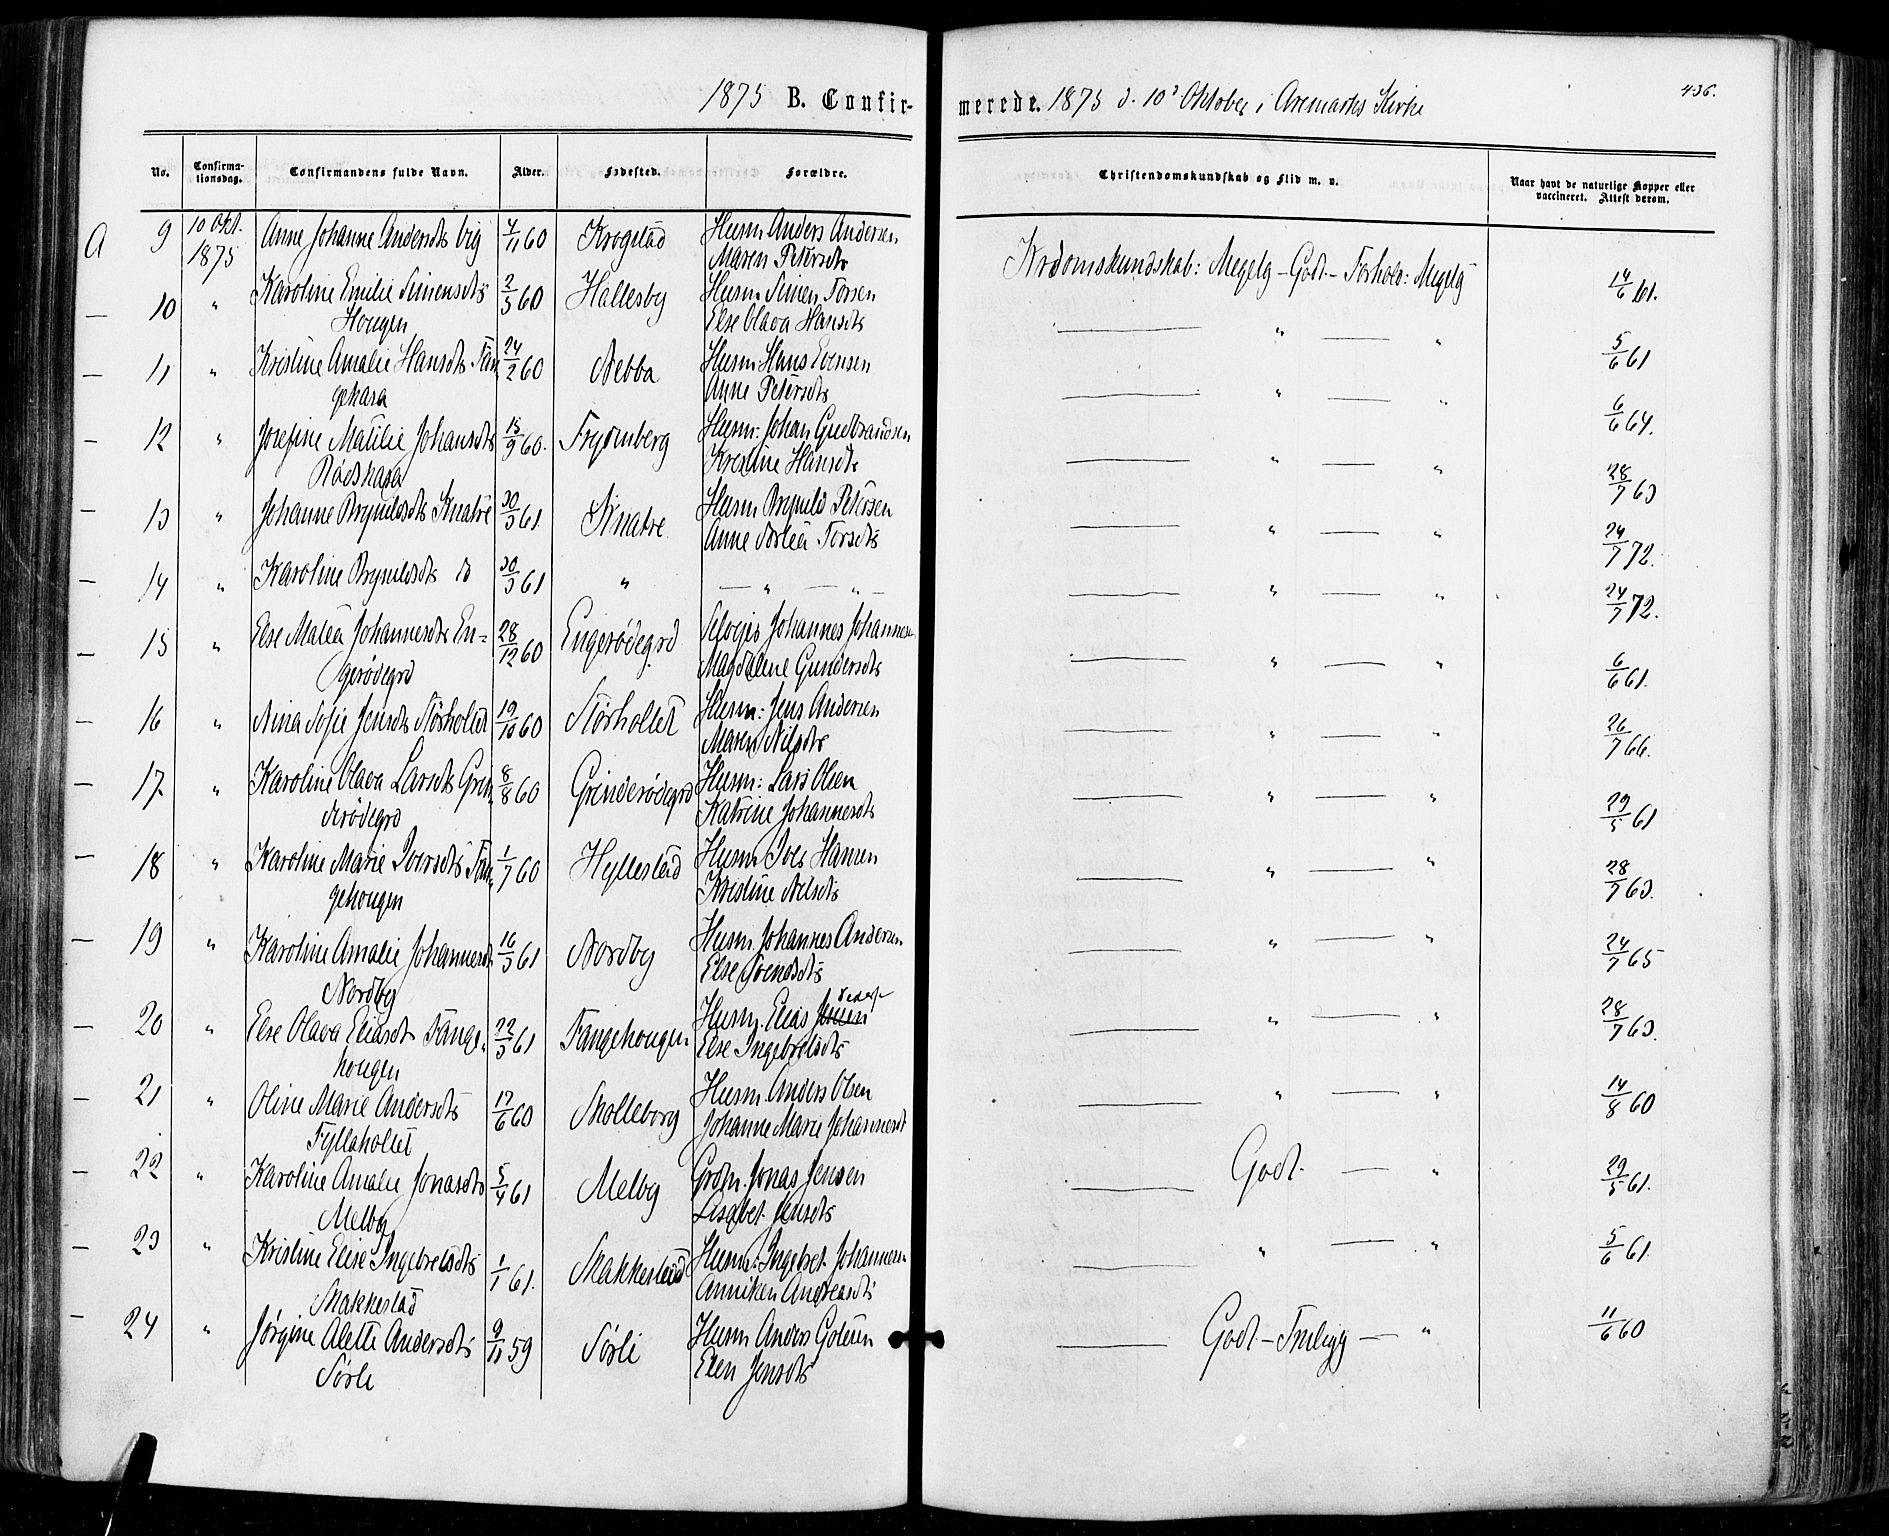 1875 B. Confir-
merede. 1875 d. 10de Oktober i Aremarks Kirke
436.
No. Confirma-tionsdag. Confirmandens fulde Navn. Alder. Fødested. Forældre.
Christendomskundskab og Flid m. v. Naar havt de naturlige Kopper eller vaccineret. Attest derom.
A 9 10 Okt. 1875 Anne Johanne Andersdtr 4/11 60 Krogstad Husm. Anders Andersen
Maren Petersdtr
Krdomskundskab: Megetg – Godt – Forhold: Megetg 14/6 61.
— 10 " Karoline Emilie Simensdtr 2/5 60 Hallesby Husm. Simen Torsen
Hougen Else Olava Hansdtr
— " — " 5/6 61
— 11 " Kristine Amalie Hansdtr Tan 24/2 60 Nebba Husm: Hans Evensen
gekasa Anne Petersdtr
— " — " 6/6 64.
— 12 " Josefine Matilie Johansdtr 15/9 60. Frydenberg Husm: Johan Gudbrandsen
Rødskasa Kristine Hansdtr
— " — " 28/7 63
— 13 " Johanne Brynildsdtr Knatre 30/3 61. Knatre Husm Brynild Petersen
Anne Dorlea Torsdtr
— " — " 24/7 72.
— 14 " Karoline Brynildsdtr do 30/3 61 " — " — " —
— " — " 24/7 72.
— 15 " Else Matea Johannesdtr En= 28/12 60 Engerødegrd Selvejer Johannes Johannesen
gerødegrd Magdalene Gundersdtr
— " — " 6/6 61.
— 16 " Nina Sofie Jensdtr Størholtet 19/10 60 Størholtet Husm: Jens Andersen
Maren Nilsdtr
— " — " 26/7 66.
— 17. " Karoline Olava Larsdtr Grin 8/8 60 Grinderødegrd Husm: Lars Olsen
derødegrd Katrine Johannesdtr
— " — " 29/5 61
— 18 " Karoline Marie Iversdtr Tan 1/7 60 Hyllestad Husm Iver Hansen
gehougen Kristine Nilsdtr
— " — " 28/7 63.
— 19 " Karoline Amalie Johannesdtr 16/3 61 Nordby Husm. Johannes Andersen
Nordby Else Svendsdtr
— " — " 24/7 65
— 20 " Else Olava Eliasdtr Tange- 22/3 61 Tangehougen Husm. Elias Jensen
hougen Else Ingebretsdtr
— " — " 28/7 63.
— 21 " Oline Marie Andersdtr 17/6 60 Skolleborg Husm. Anders Olsen
Fyllaholtet Johanne Marie Johannesdtr
— " — " 14/8 60
— 22 " Karoline Amalie Jonasdtr 5/4 61 Melby Grdm. Jonas Jensen
Melby Lisabet Jensdtr
— Godt. — " 29/5 61.
— 23 " Kristine Elise Ingebretsdtr 1/1 61. Skakkestad Husm: Ingebret Johannesen
Skakkestad Anniken Andreasdtr
— " — " 5/6 61.
— 24 " Jørgine Alette Andersdtr 9/11 59 Sørli Husm Anders Gulsen
Sørli Elen Jensdtr
— Godt – Temlig — " 11/6 60